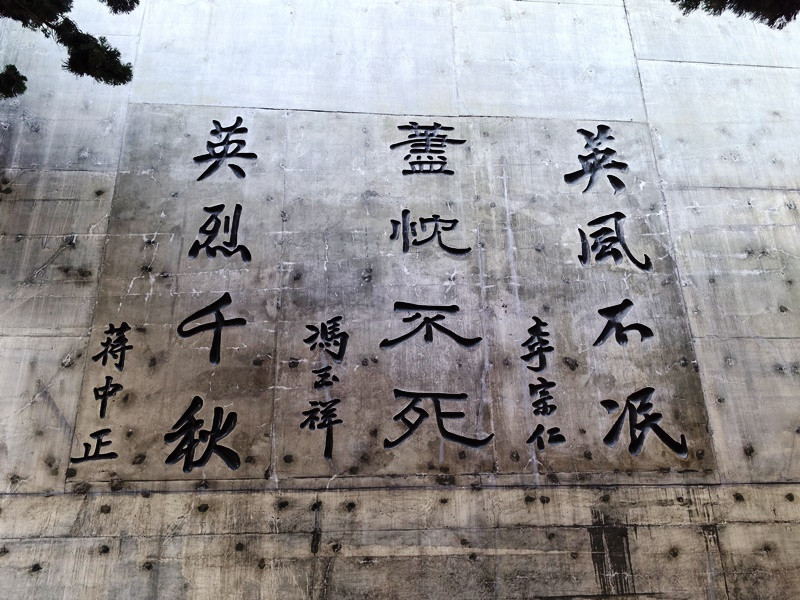 英風不泯
李宗仁
藎忱不死
馮玉祥
英烈千秋
蔣中正